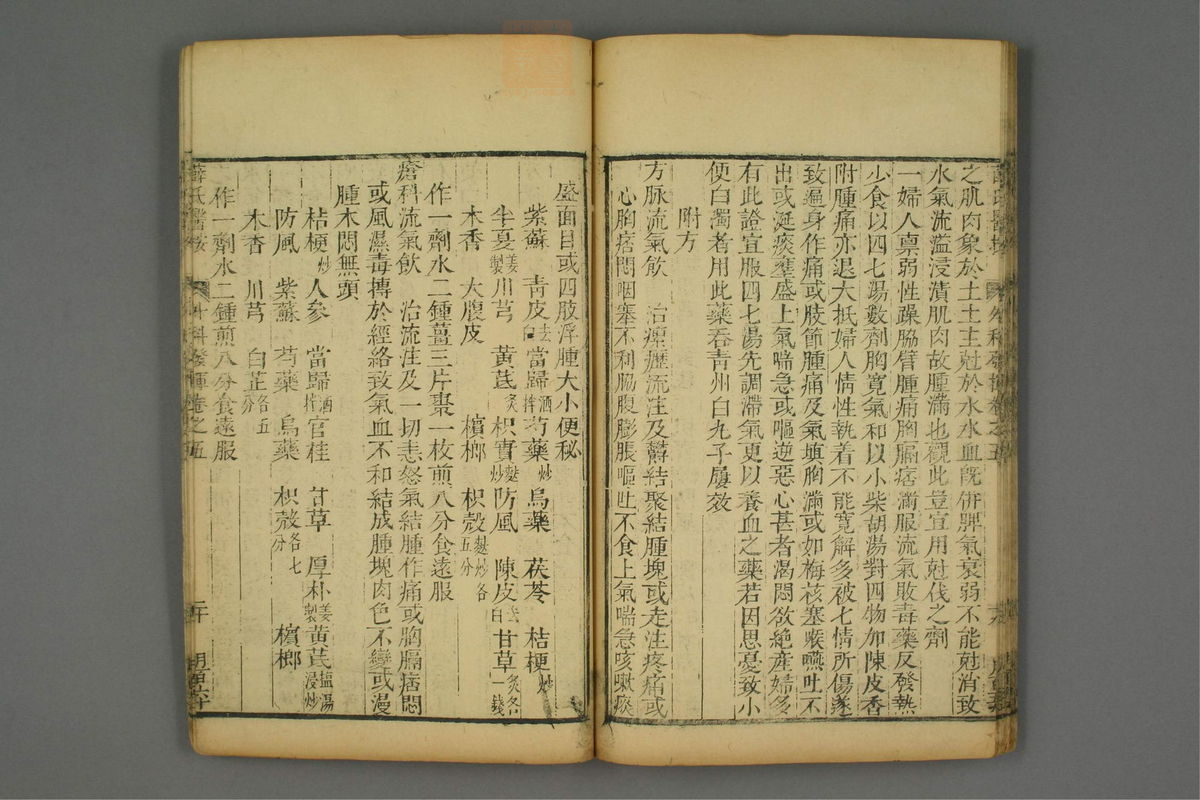 之肌肉象於土土主尅於水水血既併脾氣衰弱不能尅消致
水氣流溢浸漬肌肉故腫滿也觀此豈宜用尅伐之劑
一婦人禀弱性躁脇臂腫痛胸膈痞滿服流氣敗毒藥反發熱
少食以四七湯數劑胸寬氣和以小柴胡湯對四物加陳皮香
附腫痛亦退大抵婦人情性執着不能寬解多被七情所傷遂
致遍身作痛或肢節腫痛及氣塡胸滿或如梅核塞喉嚥吐不
出或涎痰壅盛上氣喘急或嘔逆惡心甚者渴悶欲絶産婦多
有此證宜服四七湯先調滯氣更以養血之藥若因思憂致小
便白濁者用此藥吞青州白丸子屢效
附方
方脉流氣飲 治瘰癧流注及欝結聚結腫塊或走注疼痛或
心胸痞悶咽塞不利脇腹膨脹嘔吐不食上氣喘急咳嗽痰
盛面目或四肢浮腫大小便秘
紫蘇 青皮去白 當歸酒拌 芍藥炒 烏藥 茯苓 桔梗炒
半夏姜製 川芎 黃芪炙 枳實麩炒 防風 陳皮去白 甘草炙各一錢
木香 大腹皮 檳榔 枳殼麩炒各五分
作一劑水二鍾薑三片棗一枚煎八分食遠服
瘡科流氣飲 治流注及一切恚怒氣結腫作痛或胸膈痞悶
或風濕毒搏於經絡致氣血不和結成腫塊肉色不變或漫
腫木悶無頭
桔梗炒 人參 當歸酒拌 官桂 甘草 厚朴姜製 黃芪塩湯浸炒
防風 紫蘇 芍藥 烏藥 枳殼各七分 檳榔
木香 川芎 白芷各五分
作一劑水二鍾煎八分食遠服
薛氏醫按 外科發揮卷之五 二十